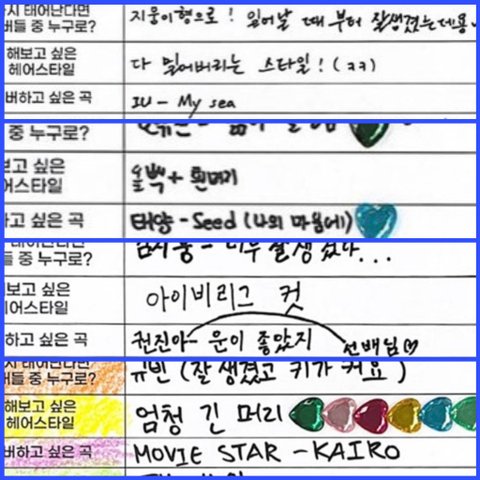 시 태어난다면
버들 중 누구로? 지웅이형으로! 일어날 때부터 잘생겼는데용~
해보고 싶은
헤어스타일 다 밀어버리는 스타일! (ㅋㅋ)
버하고 싶은 곡 IU - My sea
중 누구로?
보고 싶은
어스타일 올빽 + 흰머리
하고 싶은 곡 태양 - Seed (나의 마음에)
태어난다면
들 중 누구로? 너무 잘생겼다...
보고 싶은
어스타일 아이비리그 컷
하고 싶은 곡 권진아 - 운이 좋았지 선배님♡
시 태어난다면
버들 중 누구로? 규빈 (잘생겼고 키가 커요)
해보고 싶은
헤어스타일 엄청 긴 머리
버하고 싶은 곡 MOVIE STAR - KAIRO